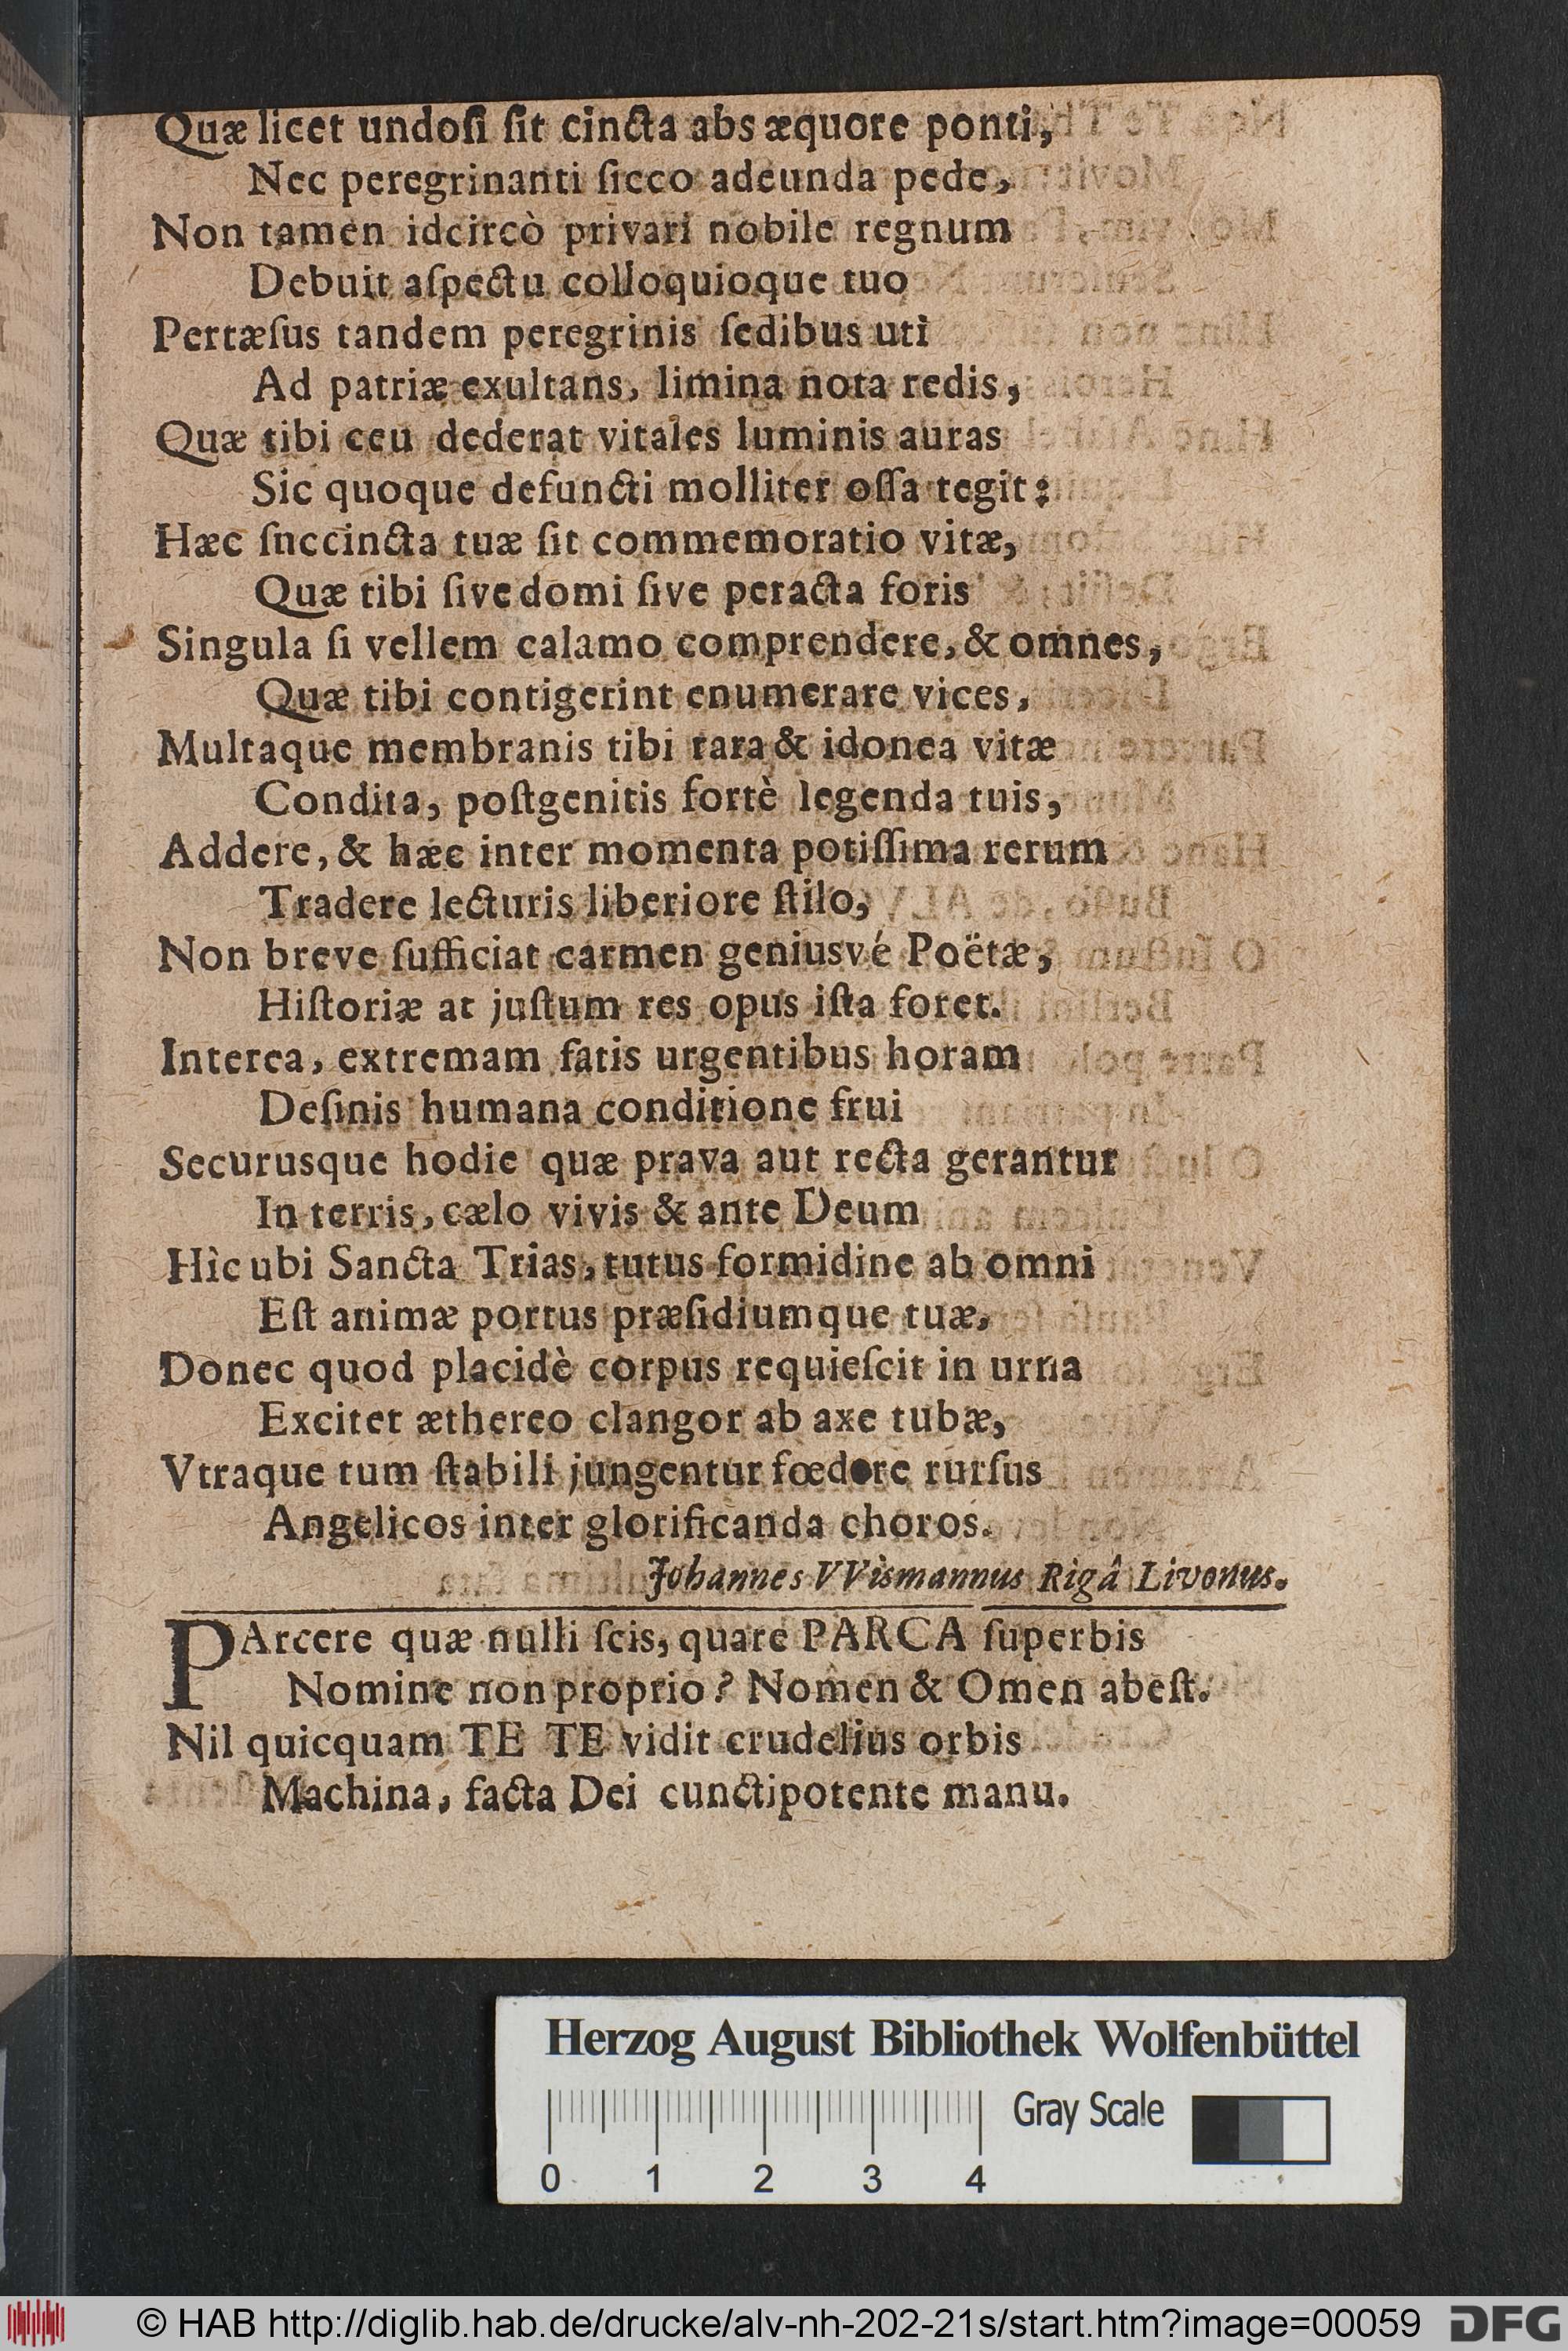 Quæ licet undoſi ſit cincta abs æquore ponti,
Nec peregrinanti ſicco adeunda pede,
Non tamen idcircò privari nobile regnum
Debuit aſpectu colloquioque tuo
Pertæſus tandem peregrinis ſedibus uti
Ad patriæ exultans, limina nota redis,
Quæ tibi ceu dederat vitales luminis auras
Sic quoque defuncti molliter oſſa tegit:
Hæc ſnccincta tuæ ſit commemoratio vitæ,
Quæ tibi ſive domi ſive peracta foris
Singula ſi vellem calamo comprendere, & omnes,
Quæ tibi contigerint enumerare vices,
Multaque membranis tibi rara & idonea vitæ
Condita, poſtgenitis fortè legenda tuis,
Addere, & hæc inter momenta potiſſima rerum
Tradere lecturis liberiore ſtilo,
Non breve ſufficiat carmen geniusvé Poëtæ,
Hiſtoriæ at juſtum res opus iſta foret.
Interea, extremam fatis urgentibus horam
Deſinis humana conditione frui
Securusque hodie quæ prava aut recta gerantur
In terris, cælo vivis & ante Deum
Hìc ubi Sancta Trias, tutus formidine ab omni
Eſt animæ portus præſidiumque tuæ,
Donec quod placidè corpus requieſcit in urna
Excitet æthereo clangor ab axe tubæ,
Vtraque tum ſtabili jungentur fœdere rurſus
Angelicos inter glorificanda choros.
Johannes VVismannus Rigâ Livonus.
PArcere quæ nulli ſcis, quare PARCA ſuperbis
Nomine non proprio? Nomen & Omen abeſt.
Nil quicquam TE TE vidit crudelius orbis
Machina, facta Dei cunctipotente manu.
Herzog August Bibliothek Wolfenbüttel
Gray Scale
0 1 2 3 4
© HAB http://diglib.hab.de/drucke/alv-nh-202-21s/start.htm?image=00059
DFG